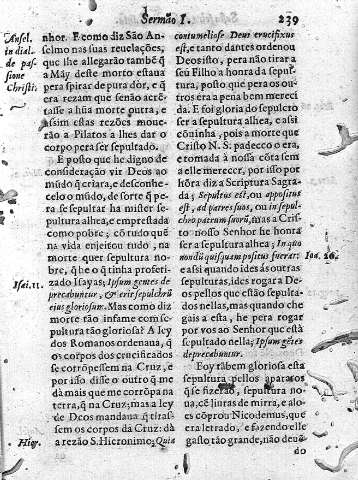 Sermão I.
239
Ansel.
in dial.
de pas-
sione
Christi.
nhor. E como diz São An-
selmo nas suas reuelações,
que lhe allegarão tambẽ q̃
a Mãy deste morto estaua
pera spirar de pura dor, e q̃
era rezam que senão acrẽ-
tasse a hũa morte outra, e
assim estas rezões moue-
rão a Pilatos a lhes dar o
corpo pera ser sepultado.
E posto que he digno de
consideração vir Deos ao
mũdo q̃ criara, e desconhe-
celo o mũdo, de sorte q̃ pe-
ra se sepultar ha mister se-
pultura alhea, e emprestada
como pobre; cõ tudo quẽ
na vida enjeitou tudo, na
morte quer sepultura no-
bre, q̃ he o q̃ tinha profeti-
zado Isayas; Ipsum gentes de
precabuntur, & erit sepulchrũ
eius gloriosum. Mas como diz
morte tão infame com se-
pultura tão gloriosa? A ley
dos Romanos ordenaua, q̃
os corpos dos crucificados
se corrõpessem na Cruz, e
por isso disse o outro q̃ me
dà mais que me corrõpa na
terra, q̃ na Cruz; mas a ley
de Deos mandaua q̃ tiras-
sem os corpos da Cruz: dà
a rezão S. Hieronimo; Quia
Isai. 11.
Hier.
contumeliose Deus crucifixus
est, e tanto dantes ordenou
Deos isto, pera não tirar a
seu Filho a honra da sepul-
tura, posto que pera os ou-
tros era a pena bem mereci
da. E foi gloria do sepulcro
ser a sepultura alhea, e assi
cõuinha, pois a morte que
Christo N. S. padecco o era,
e tomada à nossa cõta sem
a elle merecer, por isso por
hõra diz a Scriptura Sagra-
da; Sepultus est, ou appositus
est, ad patres suos, ou in sepul-
chro patrum suorũ, mas a Cris-
to nosso Senhor he honra
ser a sepultura alhea; In quo
nondũ quisquam positus fuerat:
e assi quando ides ás outras
sepulturas, ides rogar a Deos
pelos que estão sepulta-
dos nellas, mas quando che
gais a esta, he pera rogar
por vos ao Senhor que està
sepultado nella; Ipsum gẽtes
deprecabuntur.
Ioa. 26.
Foy tãbem gloriosa esta
sepultura pellos aparatos
q̃ se fizerão, sepultura no-
ua, cẽ liuras de mirra, e alo-
es cõprou Nicodemus, que
era letrado, e fazendo elle
gasto tão grande, não deuo
do